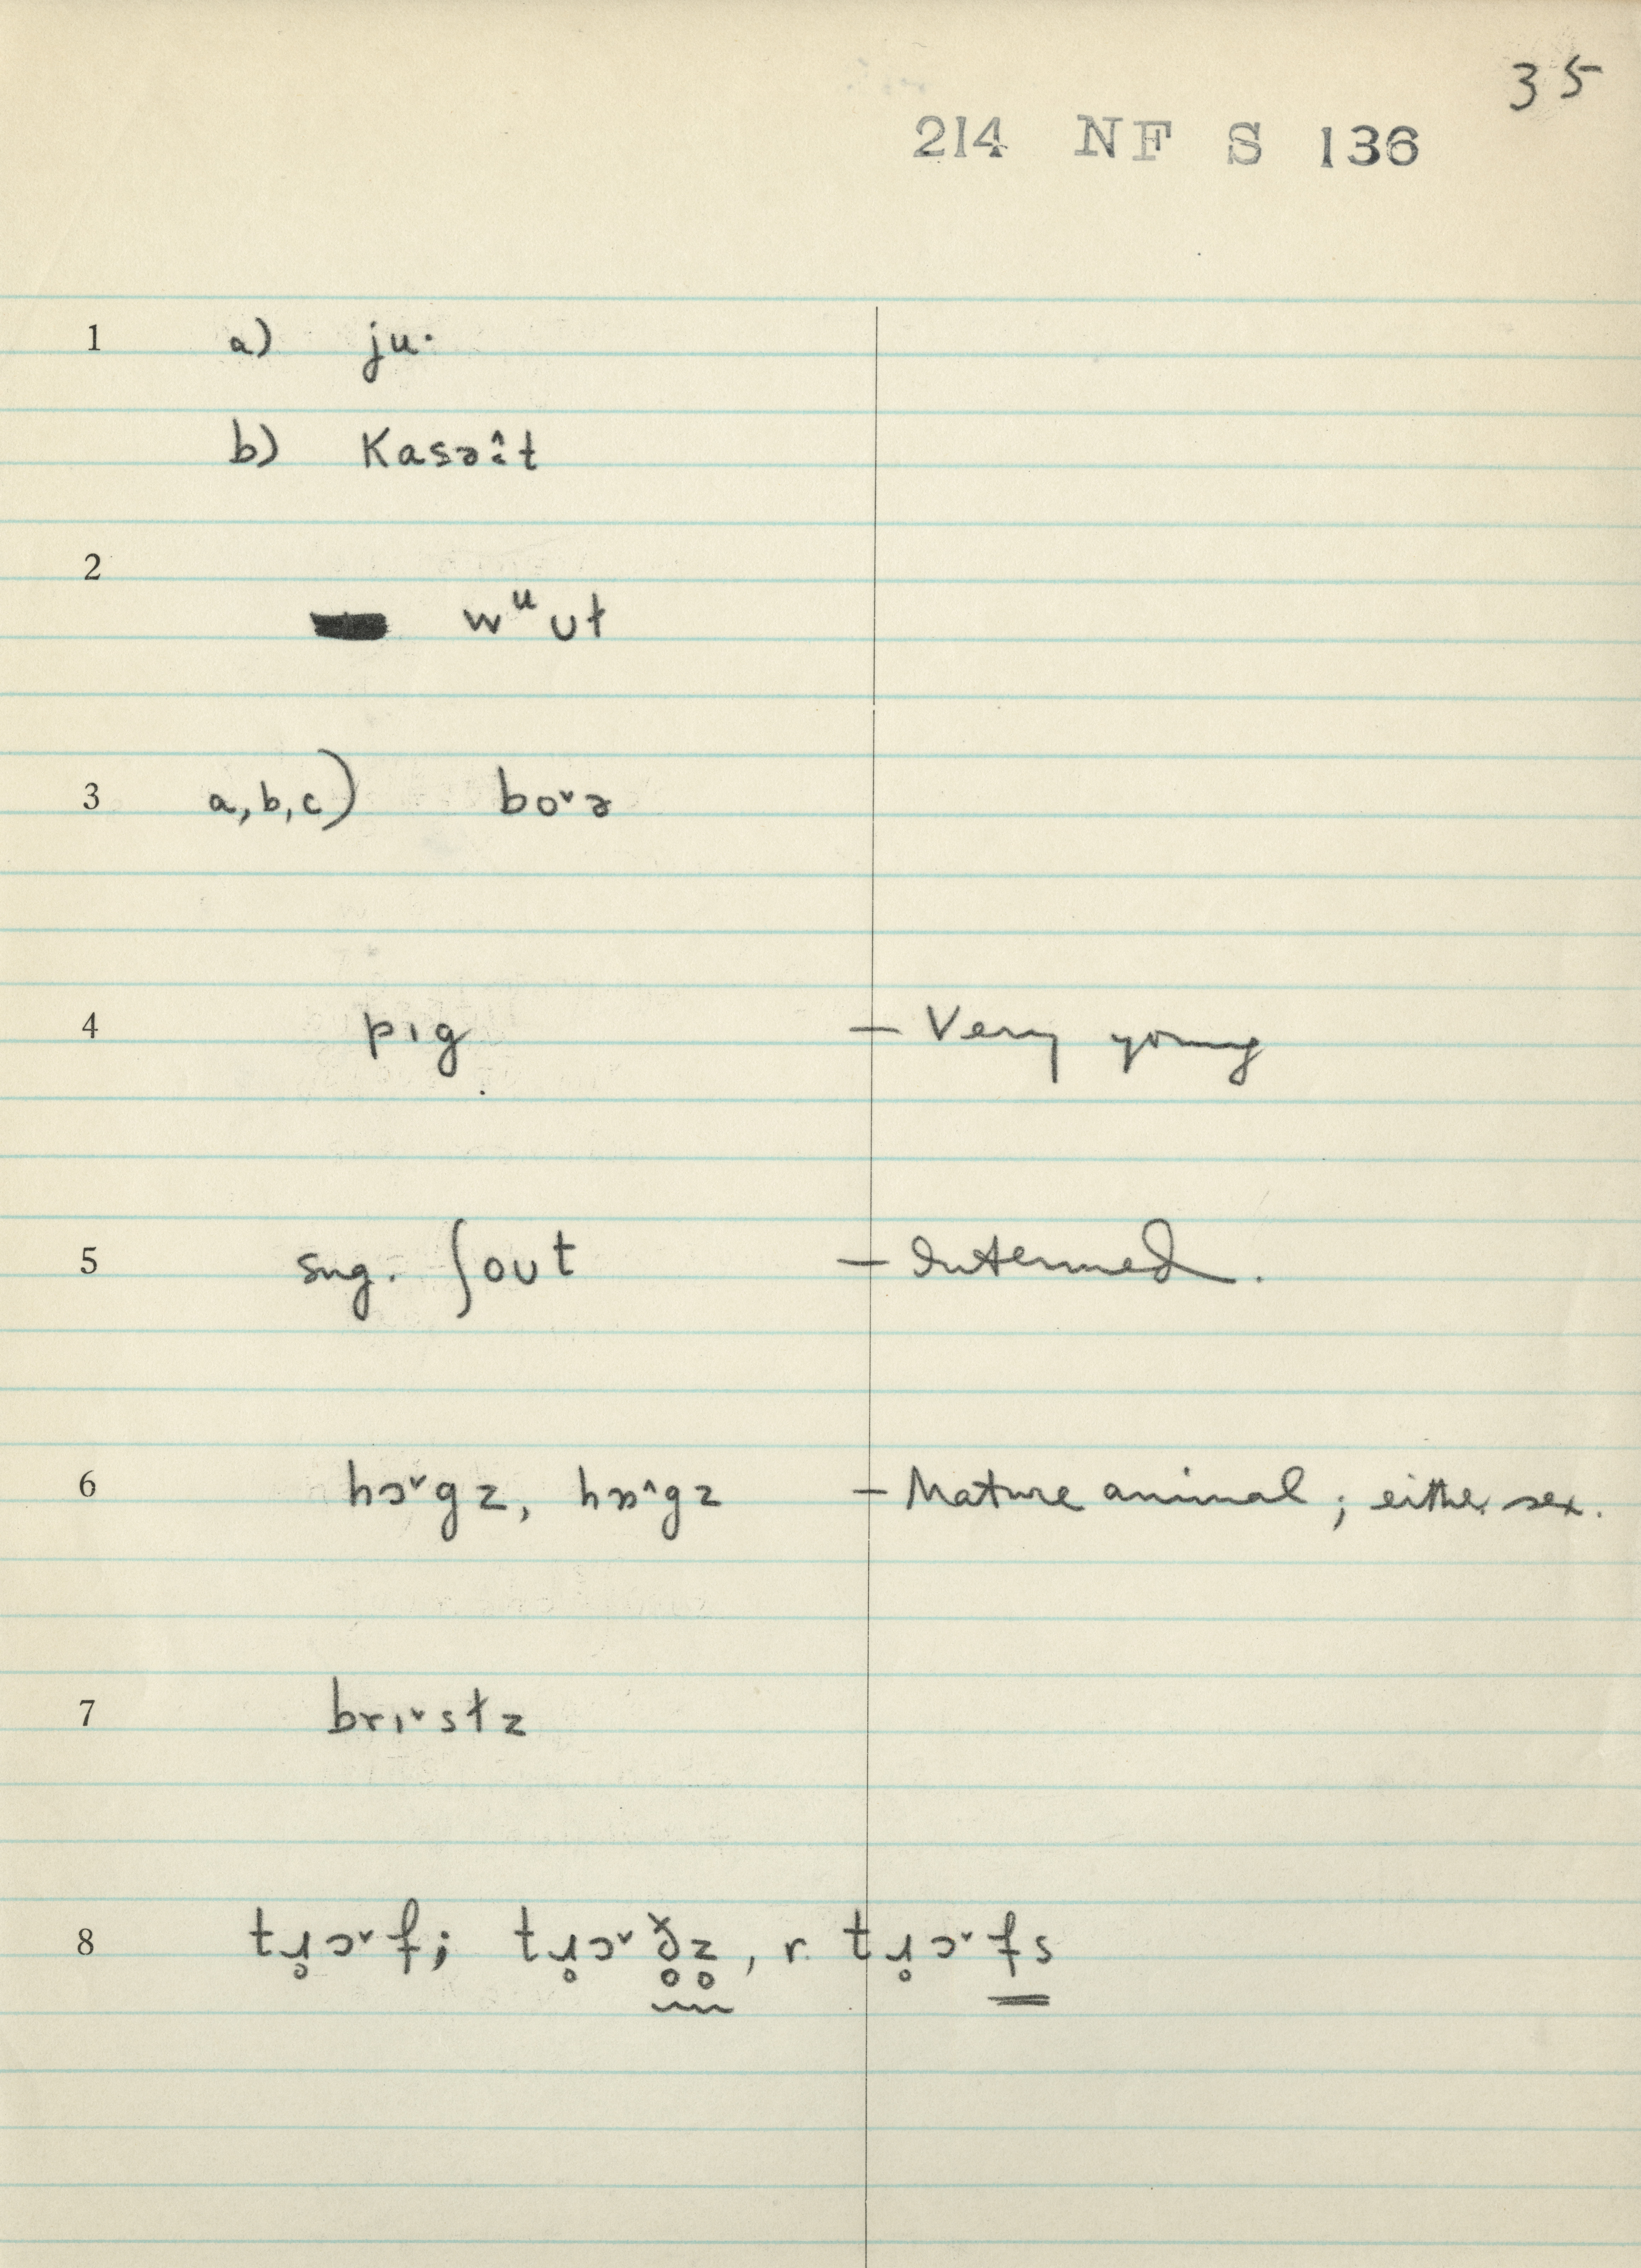 35
214 NF S 136
1 a) ju·
b) Kasəı̂t
2 wᵘʊt
3 a,b,c) bo˅ə
4 pɪg — Very young
5 sug. ʃoʊt — Intermed.
6 hɔ˅gz, hɒ˄gz — Mature animal; either sex.
7 brɪ˅stz
8 tɹ̥ɔ˅f; tɹ̥ɔ˅ð̥z̥, r. tɹ̥ɔ˅fs